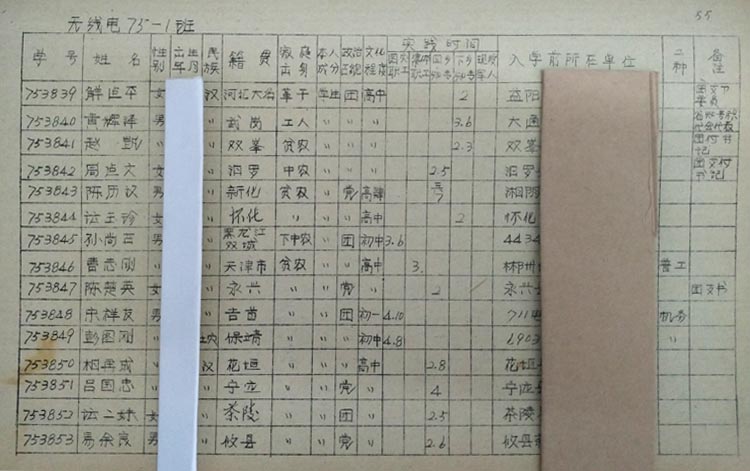 无线电75-1班
55
学号 姓名 性别 出生年月 民族 籍贯 家庭出身 本人成分 政治面貌 文化程度 实践时间 入学前所在单位 工种 备注
753839 解 平 女 汉 河北大名 革干 学生 团 高中 2 益阳
753840 男 〃 武岗 工人 〃 〃 〃 3.6 大通
753841 赵 〃 双峯 贫农 〃 〃 〃 2.3 双峯 团付书记
753842 周 文 女 〃 汨罗 中农 〃 〃 〃 2.5 汨罗 团支付书记
753843 陈历汉 男 〃 新化 贫农 〃 党 湘阴
753844 玉珍 女 〃 怀化 〃 〃 〃 高中 2 怀化
753845 孙尚 男 〃 黑龙江双城 下中农 〃 团 初中 3.6 4434
753846 曹志刚 〃 〃 天津市 贫农 〃 〃 高中 3. 郴州 普工
753847 陈楚英 女 〃 永兴 〃 〃 党 〃 2 永兴 团支书
753848 宋祥友 男 〃 吉首 〃 〃 团 初一 4.10 711 机务
753849 彭图刚 〃 土家 保靖 〃 〃 〃 初中 4.8 1903 〃
753850 成 〃 汉 花垣 〃 〃 〃 高中 2.8 花垣
753851 吕国忠 〃 〃 宁 〃 〃 党 〃 4 宁
753852 二 女 〃 茶陵 〃 〃 团 〃 2.5 茶陵
753853 易余良 男 〃 攸县 〃 〃 党 〃 2.6 攸县